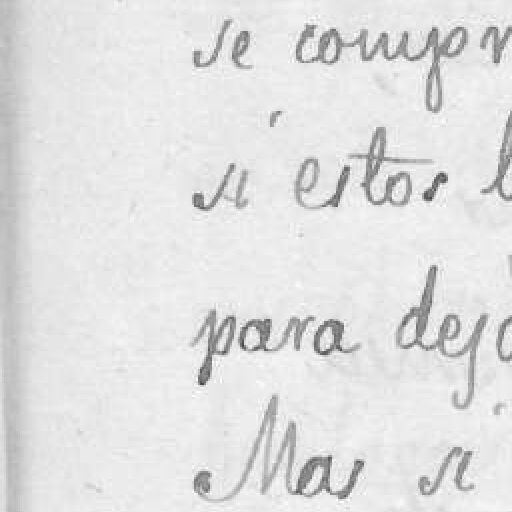 se compr
si estos l
para dejo
Mas si